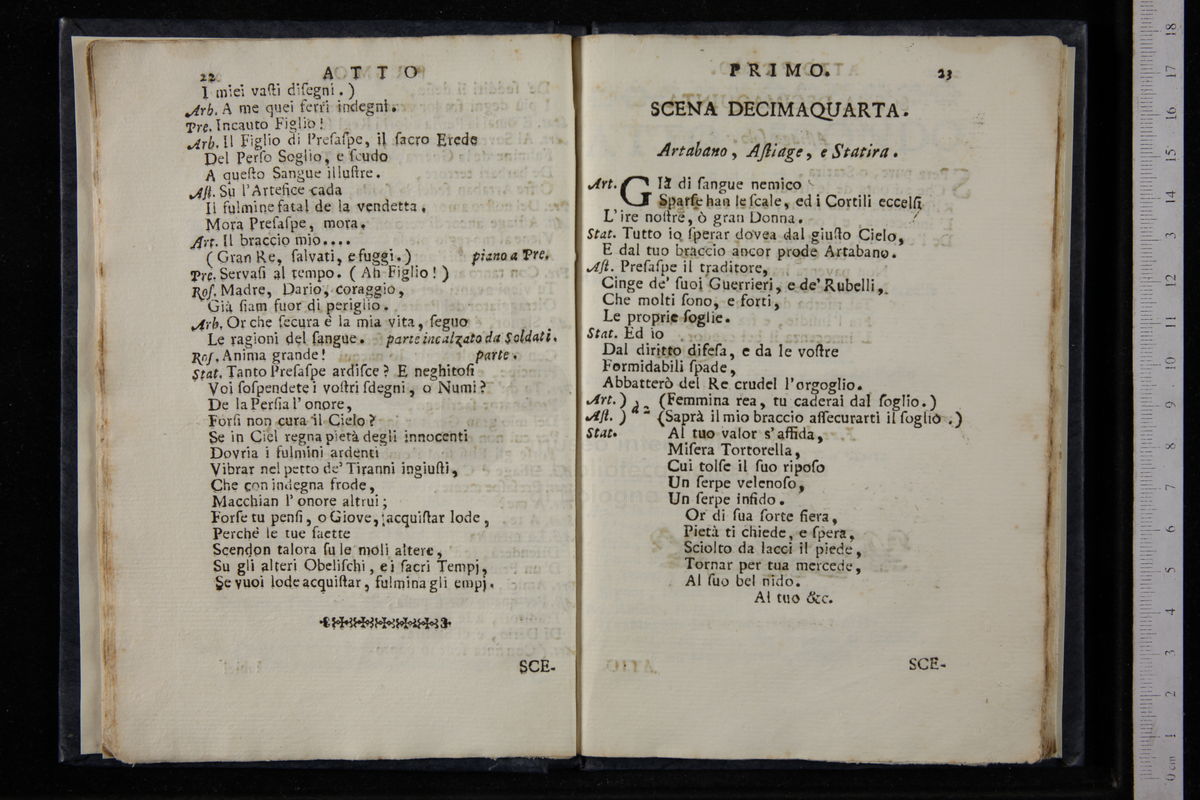 22 ATTO
I miei vaſti diſegni.)
Arb. A me quei ferri indegni.
Pre. Incauto Figlio!
Arb. Il Figlio di Preſaſpe, il ſacro Erede
Del Perſo Soglio, e ſcudo
A queſto Sangue illuſtre.
Aſt. Su l'Artefice cada
Il fulmine fatal de la vendetta.
Mora Preſaſpe, mora.
Art. Il braccio mio....
(Gran Re, ſalvati, e fuggi.) piano a Pre.
Pre. Servaſi al tempo. (Ah Figlio!)
Roſ. Madre, Dario, coraggio,
Già ſiam fuor di periglio.
Arb. Or che ſecura è la mia vita, ſeguo
Le ragioni del ſangue. parte incalzato da Soldati.
Roſ. Anima grande! parte.
Stat. Tanto Preſaſpe ardiſce? E neghitoſi
Voi ſoſpendete i voſtri ſdegni, o Numi?
De la Perſia l'onore,
Forſi non cura il Cielo?
Se in Ciel regna pietà degli innocenti
Dovria i fulmini ardenti
Vibrar nel petto de' Tiranni ingiuſti,
Che con indegna frode,
Macchian l'onore altrui;
Forſe tu penſi, o Giove, acquiſtar lode,
Perchè le tue ſaette
Scendon talora ſu le moli altere,
Su gli alteri Obeliſchi, e i ſacri Tempj,
Se vuoi lode acquiſtar, fulmina gli empj.
SCE-
PRIMO. 23
SCENA DECIMAQUARTA.
Artabano, Aſtiage, e Statira.
Art. GIà di ſangue nemico
Sparſe han le ſcale, ed i Cortili eccelſi
L'ire noſtre, ò gran Donna.
Stat. Tutto io ſperar dovea dal giuſto Cielo,
E dal tuo braccio ancor prode Artabano.
Aſt. Preſaſpe il traditore,
Cinge de' ſuoi Guerrieri, e de' Rubelli,
Che molti ſono, e forti,
Le proprie ſoglie.
Stat. Ed io
Dal diritto difeſa, e da le voſtre
Formidabili ſpade,
Abbatterò del Re crudel l'orgoglio.
Art. ) a 2 (Femmina rea, tu caderai dal ſoglio.)
Aſt. ) (Saprà il mio braccio aſſecurarti il ſoglio.)
Stat. Al tuo valor s'affida,
Miſera Tortorella,
Cui tolſe il ſuo ripoſo
Un ſerpe velenoſo,
Un ſerpe infido.
Or di ſua ſorte fiera,
Pietà ti chiede, e ſpera,
Sciolto da lacci il piede,
Tornar per tua mercede,
Al ſuo bel nido.
Al tuo &c.
SCE-